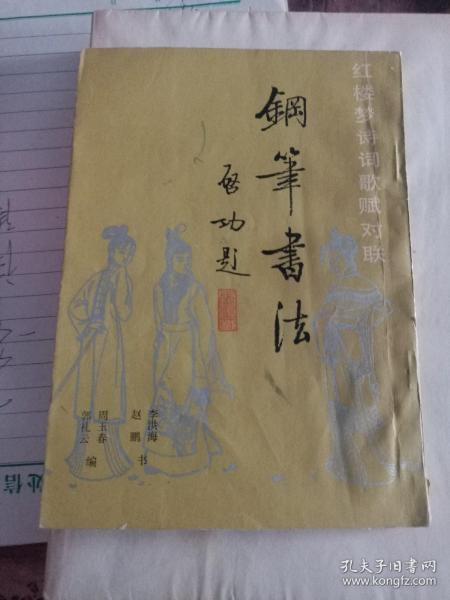 红楼梦诗词歌赋对联
鋼筆書法
启功题
李洪海
赵鹏 书
周玉春
郭礼云 编
处信
孔夫子旧书网
www.kongfz.com